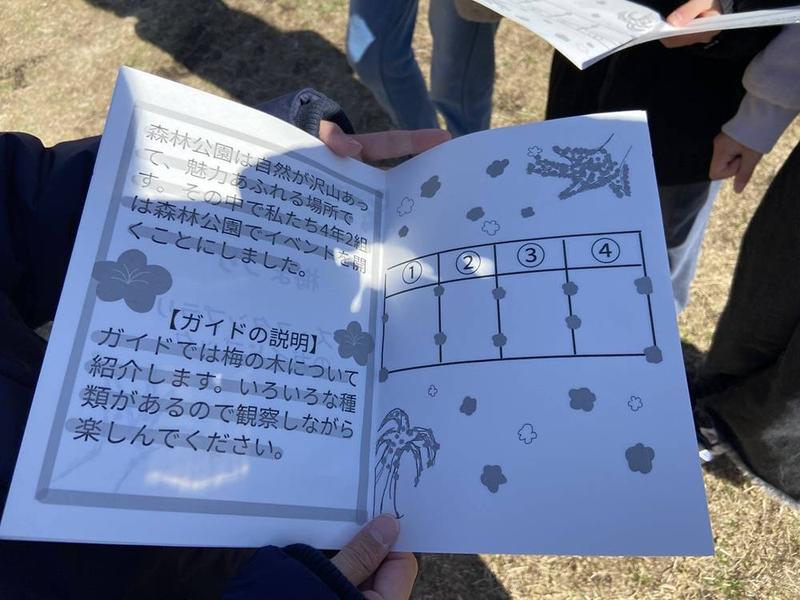 森林公園は自然が沢山あっ
て、魅力あふれる場所で
す。その中で私たち4年2組
は森林公園でイベントを開
くことにしました。
【ガイドの説明】
ガイドでは梅の木について
紹介します。いろいろな種
類があるので観察しながら
楽しんでください。
① ② ③ ④